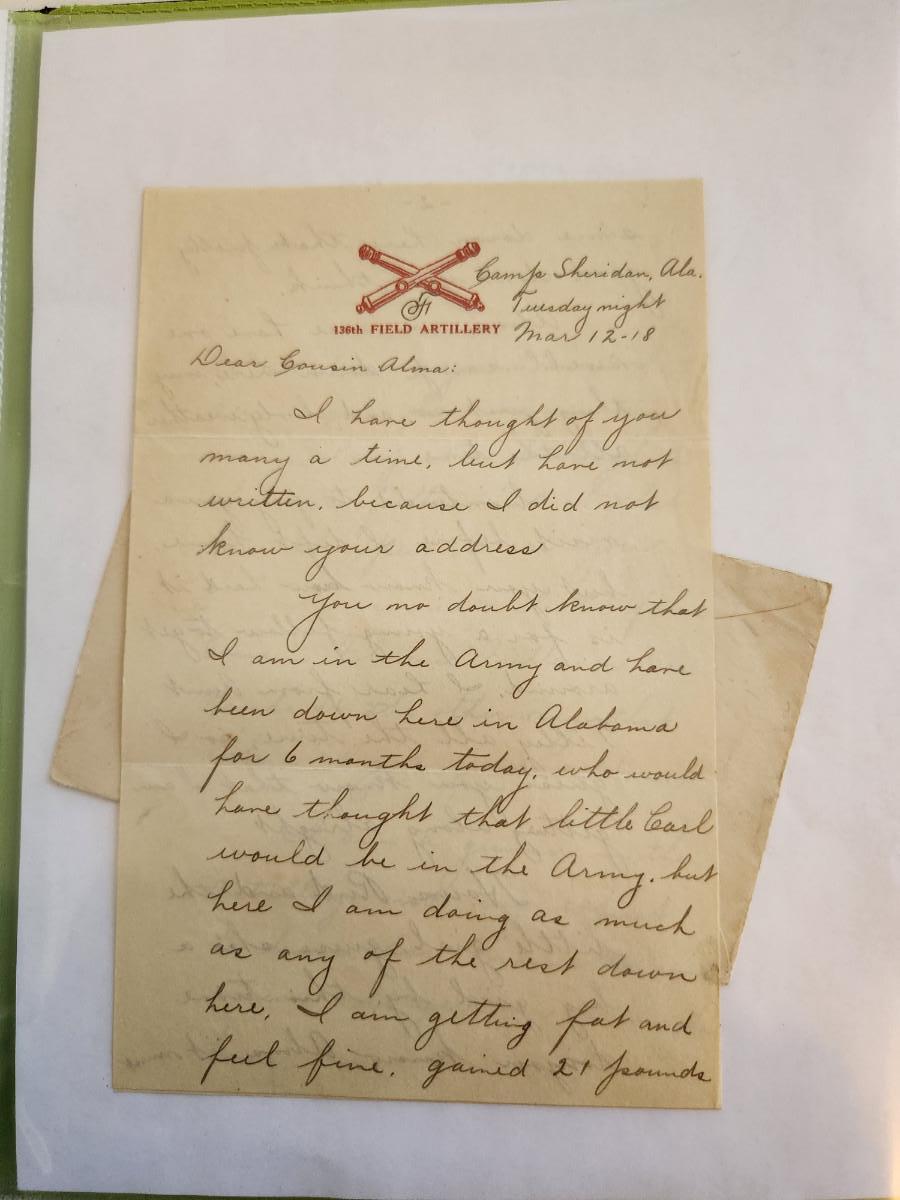 136th FIELD ARTILLERY
Camp Sheridan, Ala.
Tuesday night
Mar 12-18
Dear Cousin Alma:
I have thought of you
many a time, but have not
written, because I did not
know your address
You no doubt know that
I am in the Army and have
been down here in Alabama
for 6 months today, who would
have thought that little Carl
would be in the Army, but
here I am doing as much
as any of the rest down
here, I am getting fat and
feel fine, gained 21 pounds